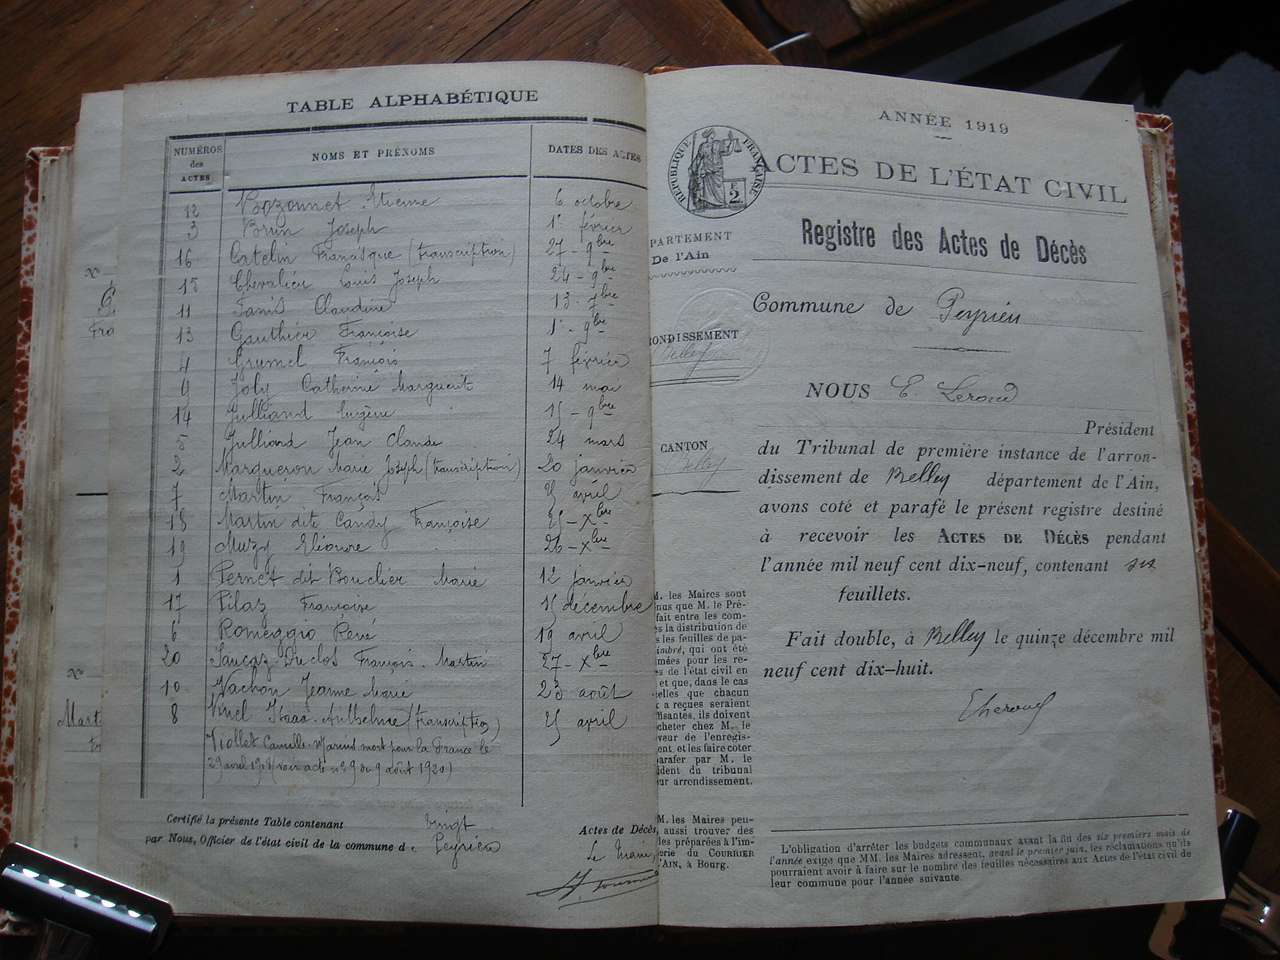 TABLE ALPHABÉTIQUE
NUMÉROS des ACTES NOMS ET PRÉNOMS DATES DES ACTES
12 Bozonnet Etienne 6 octobre
3 Brun Joseph 1er février
16 Catelin Françisque (transcription) 27 - 9bre
15 Chevalier Louis Joseph 24 - 9bre
11 Janis Claudine 13 - 7bre
13 Gauthier Françoise 1er - 9bre
4 Grumel François 7 février
9 Joly Catherine Marguerit 14 mai
14 Julliand Eugène 15 - 9bre
5 Julliard Jean Claude 24 mars
2 Marqueron Marie Joseph (transcription) 20 janvier
7 Martin François 25 avril
18 Martin dite Candy Françoise 25 - Xbre
19 Muzy Eléonore 26 - Xbre
1 Pernet dit Bouclier Marie 12 janvier
17 Pilaz Françoise 15 décembre
6 Romeggio René 19 avril
20 Saucaz-Duclos François-Martin 27 - Xbre
10 Vachon Jeanne Marie 23 août
8 Vinel Isaac (transcription) 25 avril
Viollet Camille-Marius mort pour la France le
29 avril (voir acte n° 9 du 9 août 1920)
Certifié la présente Table contenant vingt Actes de Décès,
par Nous, Officier de l'état civil de la commune d e Peyrieu
Le Maire,
x
Fra
x
Mart
ANNÉE 1919
RÉPUBLIQUE FRANÇAISE
2 F
ACTES DE L'ÉTAT CIVIL
Registre des Actes de Décès
PARTEMENT
De l'Ain
ONDISSEMENT
Belley
CANTON
Belley
Commune de Peyrieu
NOUS E. Leroud
Président
du Tribunal de première instance de l'arron-
dissement de Belley département de l'Ain,
avons coté et parafé le présent registre destiné
à recevoir les ACTES DE DÉCÈS pendant
l'année mil neuf cent dix-neuf, contenant six
feuillets.
Fait double, à Belley le quinze décembre mil
neuf cent dix-huit.
M. les Maires sont
nus que M. le Pré-
fait entre les com-
es la distribution de
s les feuilles de pa-
imbré, qui ont été
mées pour les re-
s de l'état civil en
et que, dans le cas
elles que chacun
x a reçues seraient
fisantes, ils doivent
cheter chez M. le
veur de l'enregis-
ent, et les faire coter
parafer par M. le
ident du tribunal
ur arrondissement.
M. les Maires peu-
, aussi trouver des
les préparées à l'im-
erie du COURRIER
'AIN, à Bourg.
L'obligation d'arrêter les budgets communaux avant la fin des six premiers mois de
l'année exige que MM. les Maires adressent, avant le premier juin, les réclamations qu'ils
pourraient avoir à faire sur le nombre des feuilles nécessaires aux Actes de l'état civil de
leur commune pour l'année suivante.